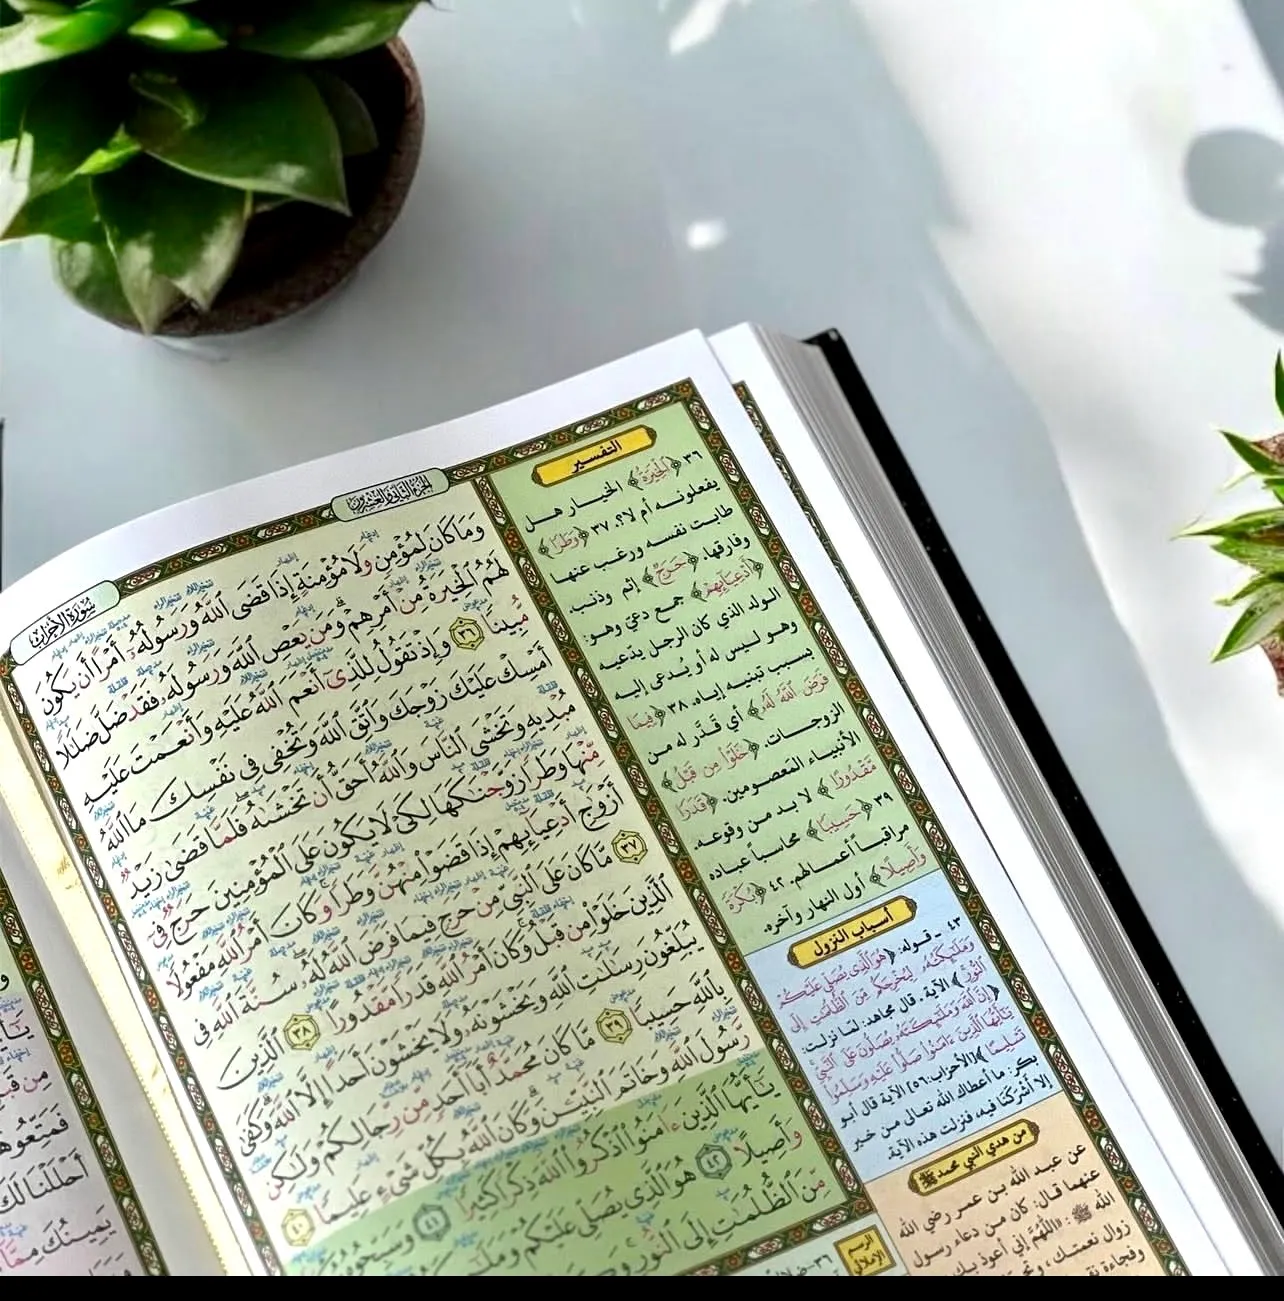 سورة الأحزاب
الجزء الثاني والعشرون
وَمَا كَانَ لِمُؤْمِنٍ وَلَا مُؤْمِنَةٍ إِذَا قَضَى ٱللَّهُ وَرَسُولُهُۥٓ أَمْرًا أَن يَكُونَ
لَهُمُ ٱلْخِيَرَةُ مِنْ أَمْرِهِمْ وَمَن يَعْصِ ٱللَّهَ وَرَسُولَهُۥ فَقَدْ ضَلَّ ضَلَٰلًا
مُّبِينًا ٣٦ وَإِذْ تَقُولُ لِلَّذِىٓ أَنْعَمَ ٱللَّهُ عَلَيْهِ وَأَنْعَمْتَ عَلَيْهِ
أَمْسِكْ عَلَيْكَ زَوْجَكَ وَٱتَّقِ ٱللَّهَ وَتُخْفِى فِى نَفْسِكَ مَا ٱللَّهُ
مُبْدِيهِ وَتَخْشَى ٱلنَّاسَ وَٱللَّهُ أَحَقُّ أَن تَخْشَىٰهُ فَلَمَّا قَضَىٰ زَيْدٌ
مِّنْهَا وَطَرًا زَوَّجْنَٰكَهَا لِكَىْ لَا يَكُونَ عَلَى ٱلْمُؤْمِنِينَ حَرَجٌ فِىٓ
أَزْوَٰجِ أَدْعِيَآئِهِمْ إِذَا قَضَوْا۟ مِنْهُنَّ وَطَرًا وَكَانَ أَمْرُ ٱللَّهِ مَفْعُولًا
٣٧ مَّا كَانَ عَلَى ٱلنَّبِىِّ مِنْ حَرَجٍ فِيمَا فَرَضَ ٱللَّهُ لَهُۥ سُنَّةَ ٱللَّهِ فِى
ٱلَّذِينَ خَلَوْا۟ مِن قَبْلُ وَكَانَ أَمْرُ ٱللَّهِ قَدَرًا مَّقْدُورًا ٣٨ ٱلَّذِينَ
يُبَلِّغُونَ رِسَٰلَٰتِ ٱللَّهِ وَيَخْشَوْنَهُۥ وَلَا يَخْشَوْنَ أَحَدًا إِلَّا ٱللَّهَ وَكَفَىٰ
بِٱللَّهِ حَسِيبًا ٣٩ مَّا كَانَ مُحَمَّدٌ أَبَآ أَحَدٍ مِّن رِّجَالِكُمْ وَلَٰكِن
رَّسُولَ ٱللَّهِ وَخَاتَمَ ٱلنَّبِيِّـۧنَ وَكَانَ ٱللَّهُ بِكُلِّ شَىْءٍ عَلِيمًا ٤٠
يَٰٓأَيُّهَا ٱلَّذِينَ ءَامَنُوا۟ ٱذْكُرُوا۟ ٱللَّهَ ذِكْرًا كَثِيرًا ٤١ وَسَبِّحُوهُ
وَأَصِيلًا ٤٢ هُوَ ٱلَّذِى يُصَلِّى عَلَيْكُمْ
مِّنَ ٱلظُّلُمَٰتِ إِلَى ٱلنُّورِ
التفسير
٣٦ ﴿ٱلْخِيَرَةُ﴾ الخيار هل
يفعلونه أم لا؟. ٣٧ ﴿وَطَرًا﴾
طابت نفسه ورغب عنها
وفارقها. ﴿حَرَجٌ﴾ إثم وذنب.
﴿أَدْعِيَآئِهِمْ﴾ جمع دعيّ وهو:
الولد الذي كان الرجل يدّعيه
وهو ليس له أو يُدعى إليه
بسبب تبنيه إياه. ٣٨ ﴿فِيمَا
فَرَضَ ٱللَّهُ لَهُۥ﴾ أي قَدَّر له من
الزوجات. ﴿خَلَوْا۟ مِن قَبْلُ﴾
الأنبياء المعصومين. ﴿قَدَرًا
مَّقْدُورًا﴾ لا بد من وقوعه.
٣٩ ﴿حَسِيبًا﴾ محاسباً عباده
مراقباً أعمالهم. ٤٢ ﴿بُكْرَةً
وَأَصِيلًا﴾ أول النهار وآخره.
أسباب النزول
٤٣ - قوله: ﴿هُوَ ٱلَّذِى يُصَلِّى عَلَيْكُمْ
وَمَلَٰٓئِكَتُهُۥ لِيُخْرِجَكُم مِّنَ ٱلظُّلُمَٰتِ إِلَى
ٱلنُّورِ﴾ الآية. قال مجاهد: لما نزلت:
﴿إِنَّ ٱللَّهَ وَمَلَٰٓئِكَتَهُۥ يُصَلُّونَ عَلَى ٱلنَّبِىِّ
يَٰٓأَيُّهَا ٱلَّذِينَ ءَامَنُوا۟ صَلُّوا۟ عَلَيْهِ وَسَلِّمُوا۟
تَسْلِيمًا﴾ [الأحزاب: ٥٦] الآية قال أبو
بكر: ما أعطاك الله تعالى من خير
إلا أشركنا فيه، فنزلت هذه الآية.
من هدي النبي محمد ﷺ
عن عبد الله بن عمر رضي الله
عنهما قال: كان من دعاء رسول
الله ﷺ: «اللهُمَّ إني أعوذ بك
زوال نعمتك، وتح
وفجاءة نق
الرسم
الإملائي
مِن قَبْ
فَمَتِّعُوهُ
أَحْلَلْنَا لَكَ
يَمِينُكَ مِمَّا